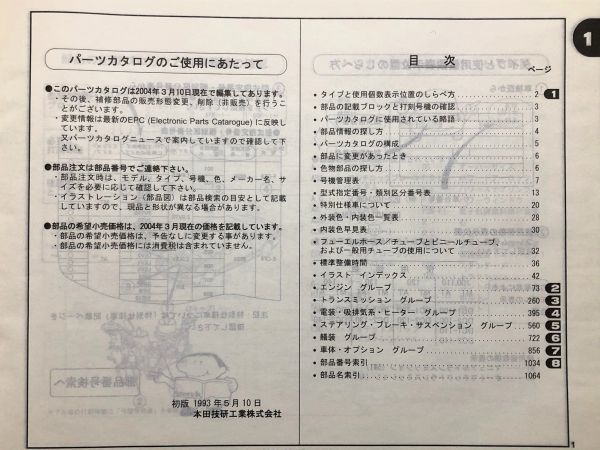 パーツカタログのご使用にあたって
●このパーツカタログは2004年3月10日現在で編集してあります。
・その後、補修部品の販売形態変更、削除(非販売)を行うこ
とがございます。
・変更情報は最新のEPC (Electronic Parts Catarogue) に反映し
ています。
又パーツカタログニュースで案内していますので確認して下
さい。
●部品注文は部品番号でご連絡下さい。
・部品注文時は、モデル、タイプ、号機、色、メーカー名、サ
イズを必要に応じて確認して下さい。
・イラストレーション(部品図)は部品検索の目安として記載
していますので、現品と形状が異なる場合があります。
●部品の希望小売価格は、2004年3月現在の価格を記載しています。
・部品の希望小売価格は、予告なしに変更する事があります。
・部品の希望小売価格には消費税は含まれていません。
初版 1993年5月10日
本田技研工業株式会社
目 次
ページ
・タイプと使用個数表示位置のしらべ方 2 1
・部品の記載ブロックと打刻号機の確認 3
・パーツカタログに使用されている略語 3
・部品情報の探し方 4
・パーツカタログの構成 5
・部品に変更があったとき 6
・色物部品の探し方 6
・号機管理表 7
・型式指定番号・類別区分番号表 13
・特別仕様車について 20
・外装色・内装色一覧表 28
・内装色早見表 30
・フューエルホース/チューブとビニールチューブ、
および一般用チューブの使用について 32
・標準整備時間 36
・イラスト インデックス 42
・エンジン グループ 73 2
・トランスミッション グループ 260 3
・電装・吸排気系・ヒーター グループ 395 4
・ステアリング・ブレーキ・サスペンション グループ 560 5
・艤装 グループ 722 6
・車体・オプション グループ 856 7
・部品番号索引 1034 8
・部品名索引 1064
1
1